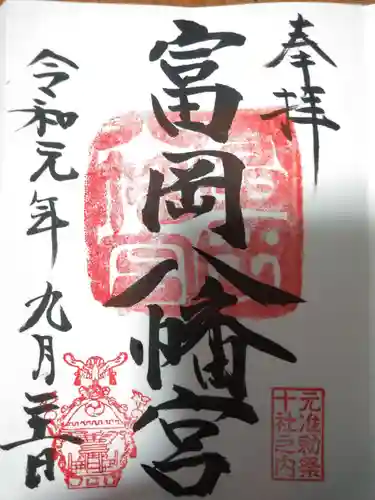 奉拝
富岡八幡宮
令和元年九月二十五日
元准勅祭
十社之内